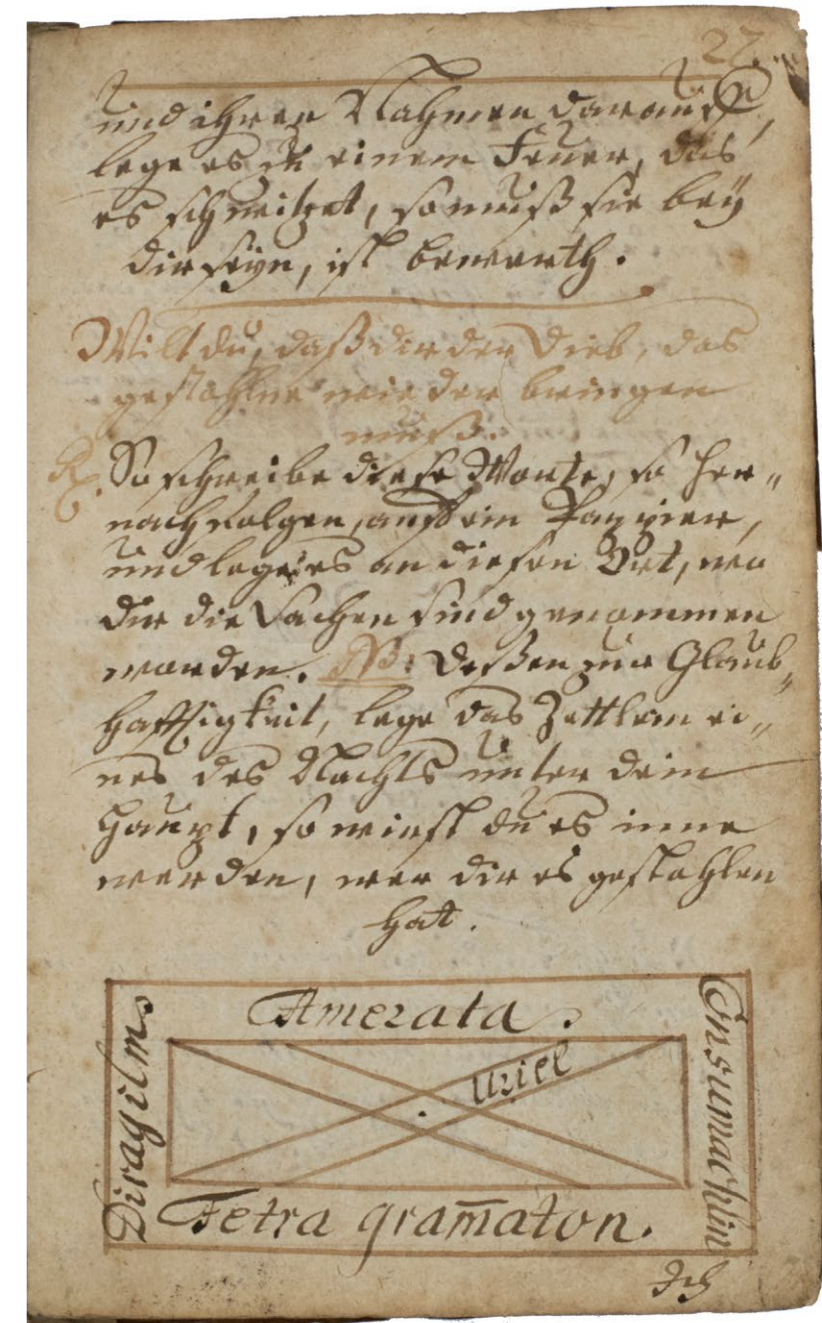 27.
und ihren Nahmen darauff,
lege es zu einem Feuer, das
es schwitzet, so muß sie bey
dir seyn, ist bewerth.
Wilt du, daß dir der Dieb, das
gestohlne wieder bringen
muß.
Rx. So schreibe diese Worte, so her„
nach folgen, auf ein Pappier,
und lege es an diesen Ort, wo
dir die Sachen sind genommen
worden. NB: Deßen zur Glaub„
hafftigkeit, lege das Zettlem ei„
nes des Nachts unter dein
Haupt, so wirst du es inne
werden, wer dir es gestohlen
hat.
Amerata.
Diragilm.
Uriel
Ensumachlin
Tetra gram̅aton.
Ich